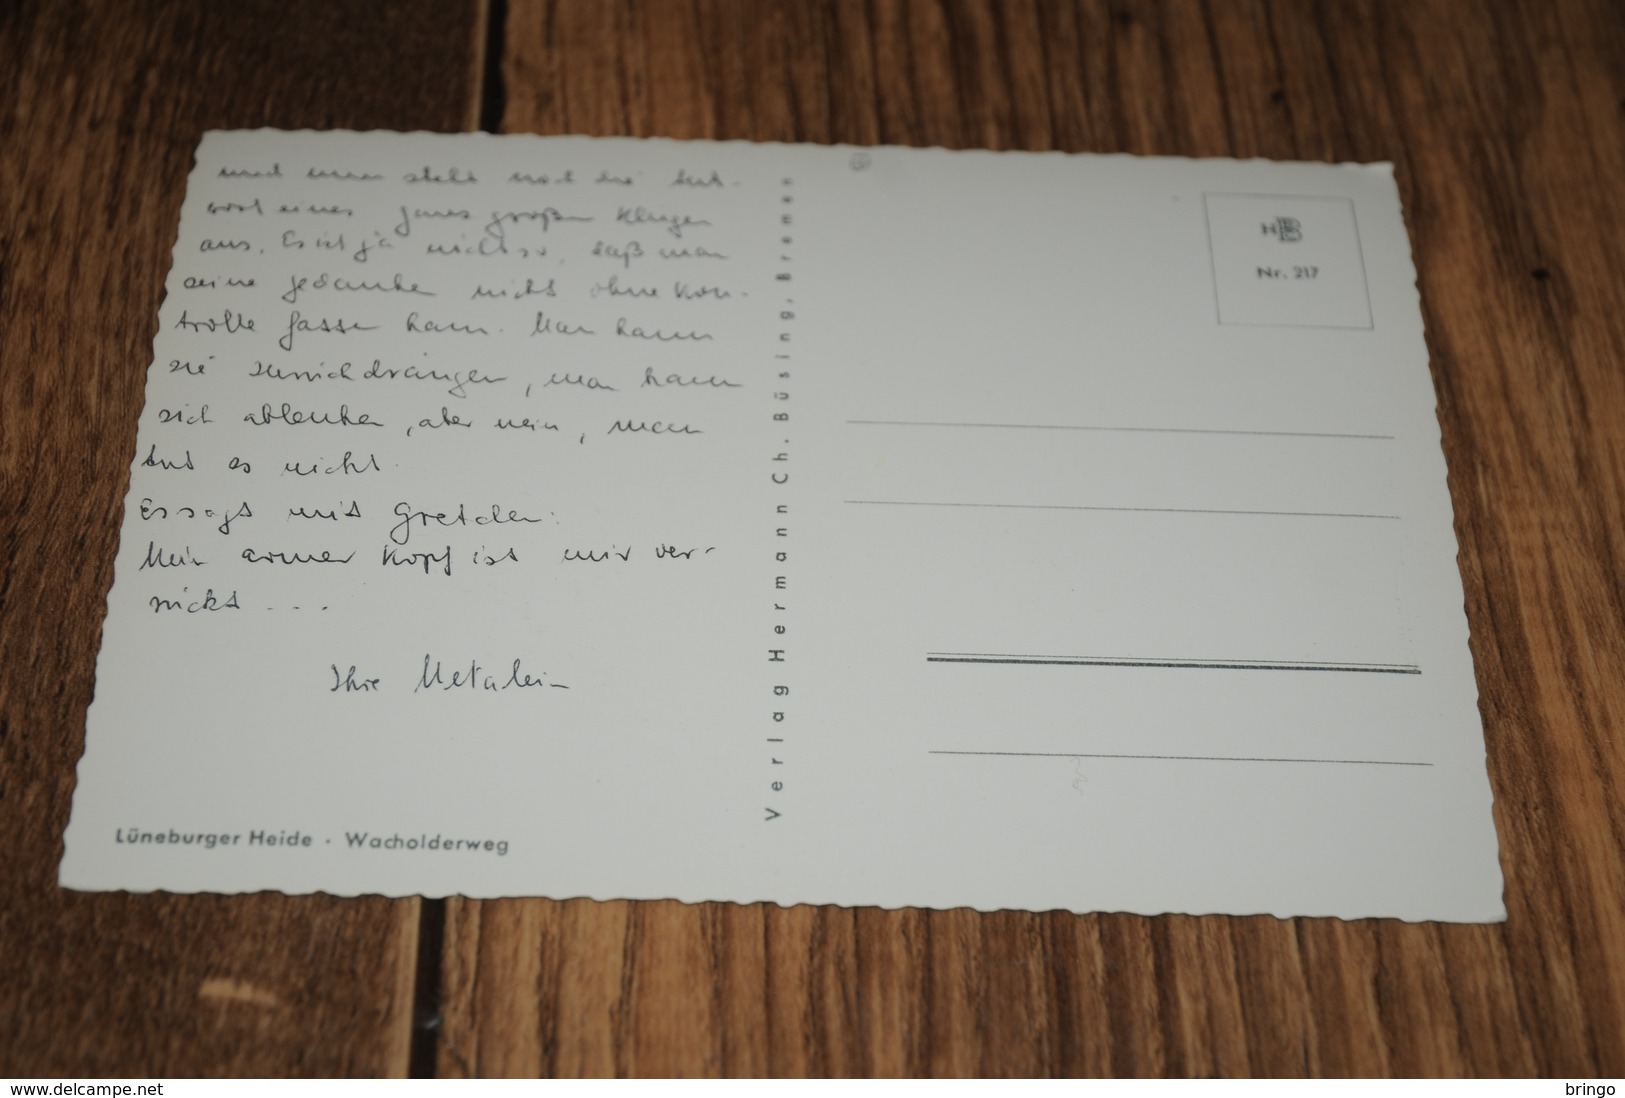 und man steht und die Ant-
wort eines ganz großen Klugen
aus. Es ist ja nicht so, daß man
seine Gedanken nicht ohne Kon-
trolle lassen kann. Man kann
sie zurückdrängen, man kann
sich ablenken, aber nein, man
tut es nicht.
Es sagt mit Gretchen:
Mein armer Kopf ist mir ver-
rückt ...
Ihre
Lüneburger Heide · Wacholderweg
Verlag Hermann Ch. Büsing, Bremen
HB
Nr. 217
www.delcampe.net
bringo